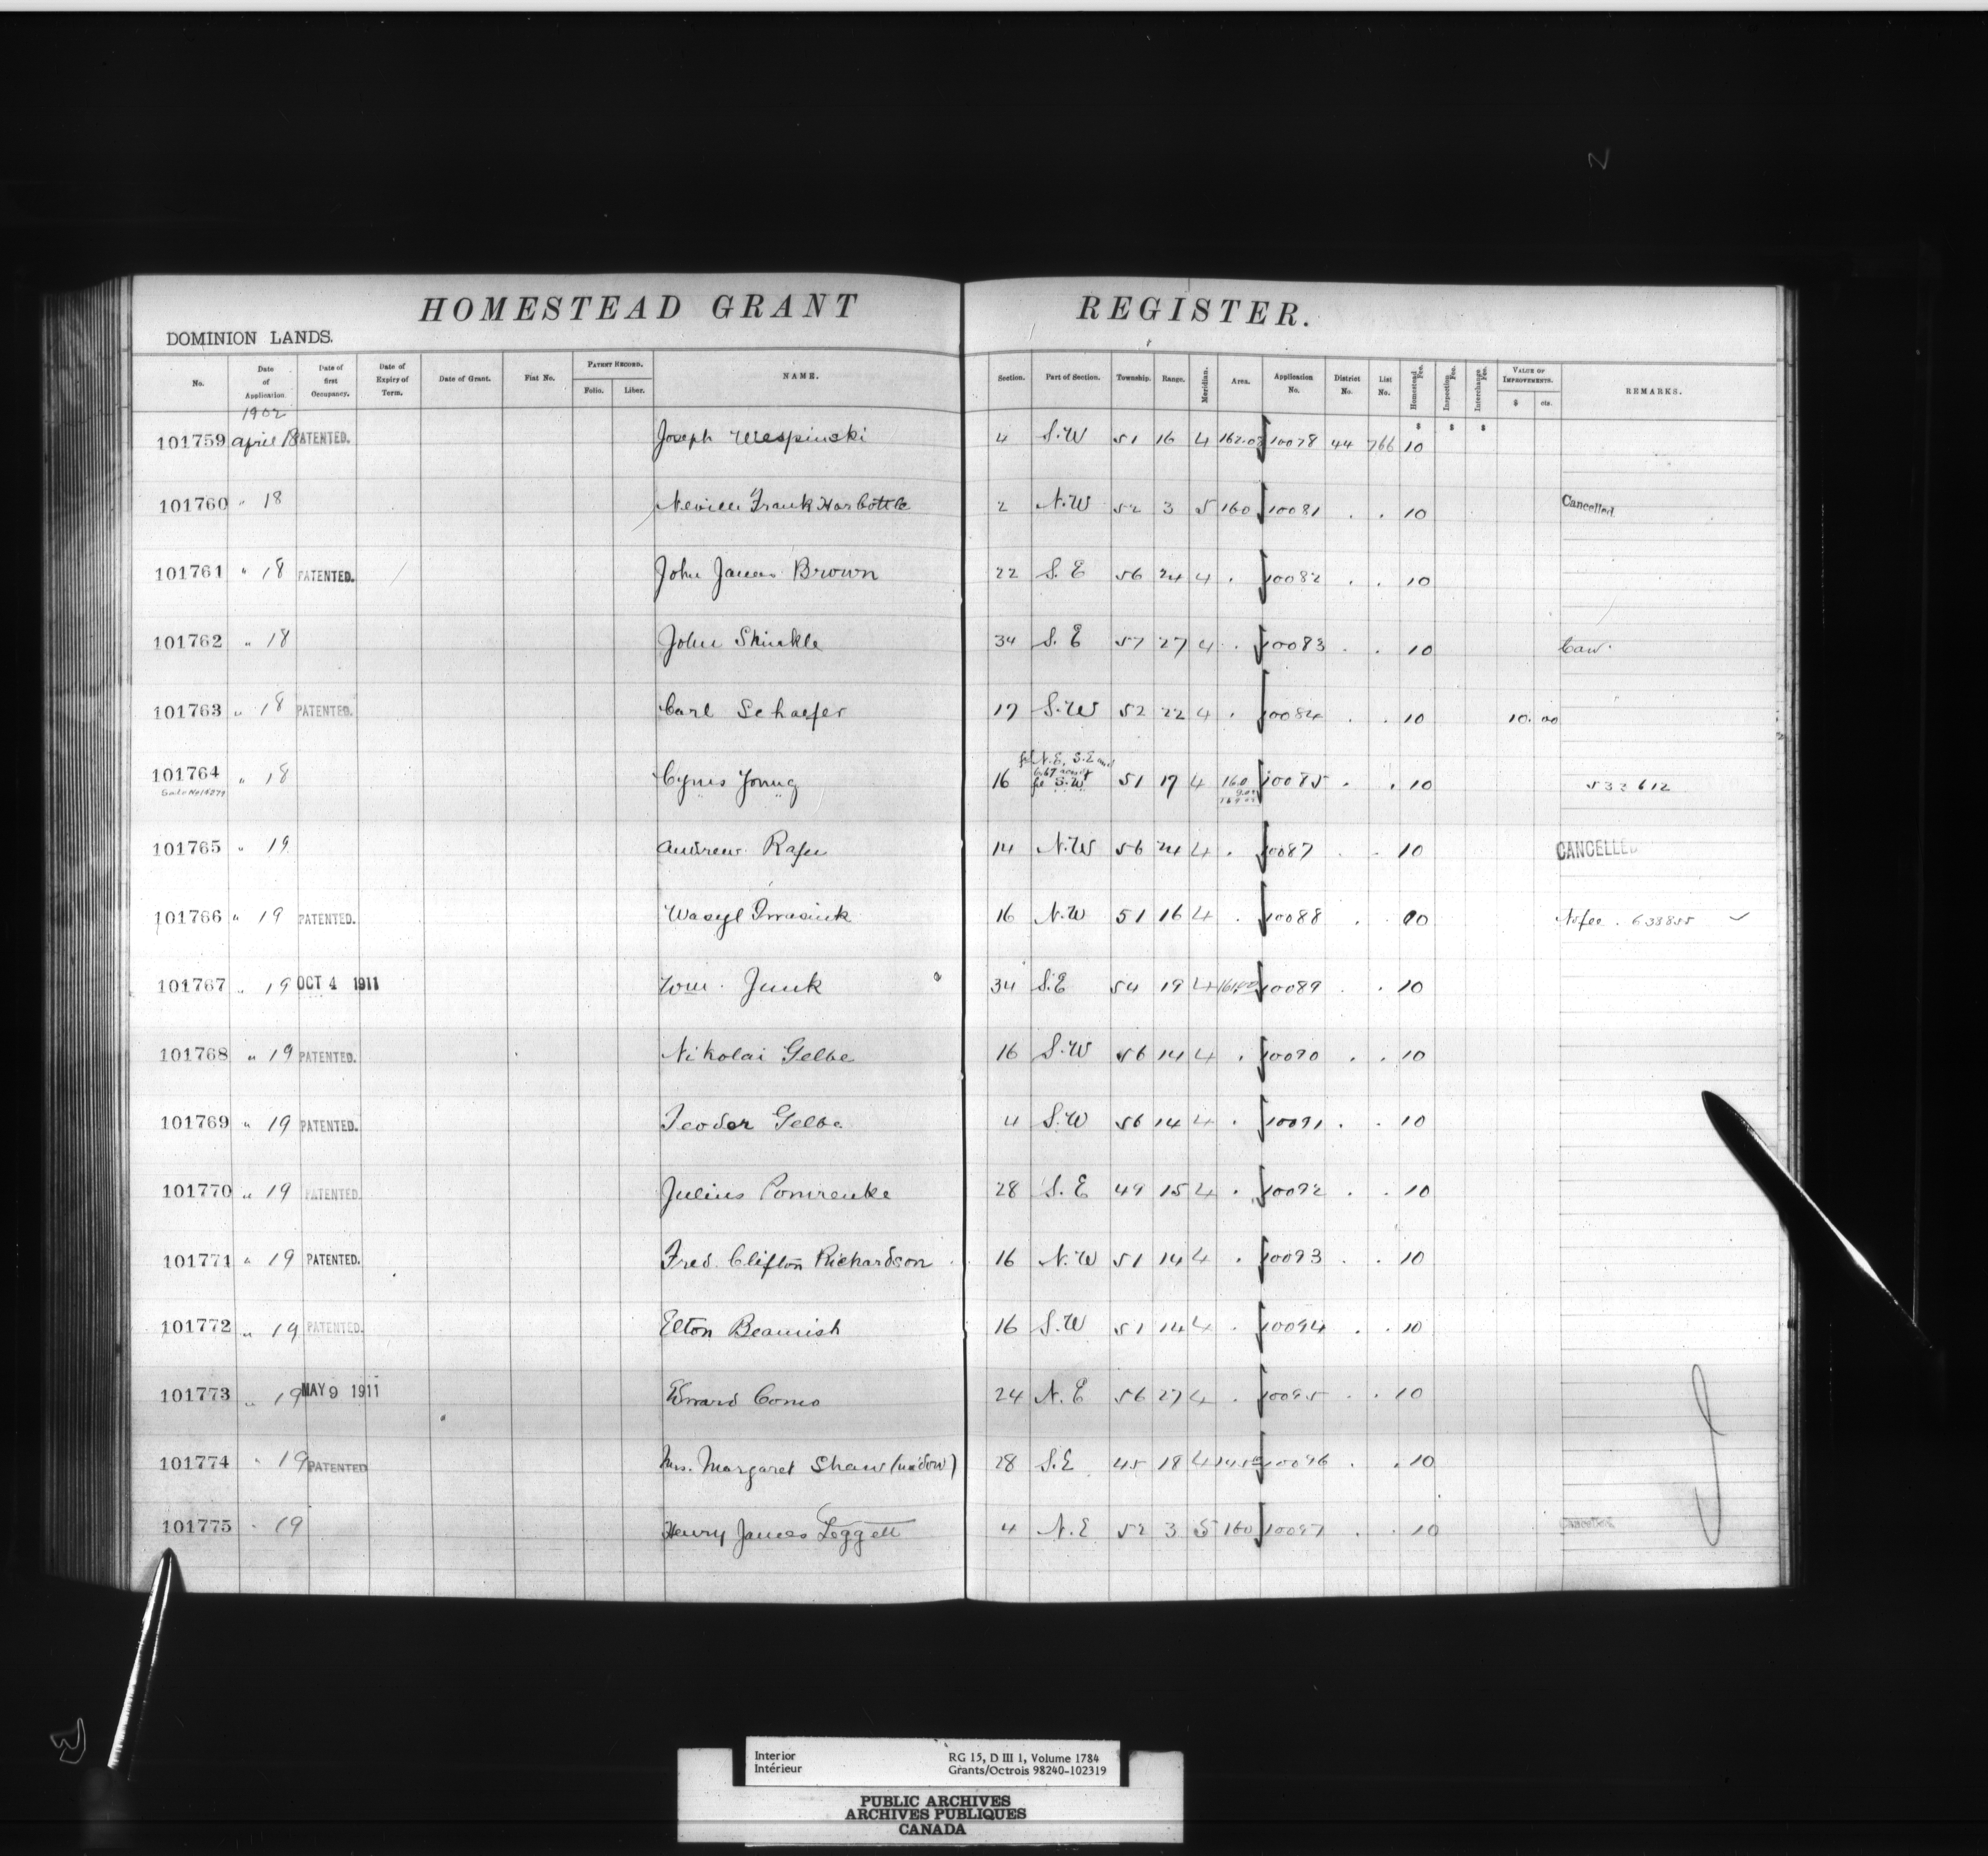 HOMESTEAD GRANT REGISTER.
DOMINION LANDS.
No. Date of Application. Date of first Occupancy. Date of Expiry of Term. Date of Grant. Fiat No. PATENT RECORD. Folio. Liber. NAME. Section. Part of Section. Township. Range. Meridian. Area. Application No. District No. List No. Homestead Fee. Inspection Fee. Interchange Fee. VALUE OF IMPROVEMENTS. $ cts. REMARKS.
1902
$ $ $
101759 April 18 PATENTED. Joseph 4 S.W 51 16 4 10078 44 766 10
101760 " 18 Neville Frank Harbottle 2 N.W 52 3 5 160 10081 . . 10 Cancelled.
101761 " 18 PATENTED. John James Brown 22 S.E 56 24 4 . 10082 . . 10
101762 " 18 John Skinkle 34 S.E 57 27 4 . 10083 . . 10 Can.
101763 " 18 PATENTED. Carl Schaefer 17 S.W 52 22 4 . 10084 . . 10 10.00
fr N.E, S.E and
101764 " 18 Cyrus Young 16 fr S.W 51 17 4 160 10085 . . 10 532612
101765 " 19 Andrew 14 N.W 56 24 4 . 10087 . . 10 CANCELLED
101766 " 19 PATENTED. Wasyl 16 N.W 51 16 4 . 10088 . . 00 No fee. 633855 ✓
101767 " 19 OCT 4 1911 Wm. Junk 34 S.E 54 19 4 10089 . . 10
101768 " 19 PATENTED. Nikolai Gelbe 16 S.W 56 14 4 . 10090 . . 10
101769 " 19 PATENTED. Teodor Gelbe 4 S.W 56 14 4 . 10091 . . 10
101770 " 19 PATENTED. Julius Pomrenke 28 S.E 49 15 4 . 10092 . . 10
101771 " 19 PATENTED. Fred. Clifton Richardson 16 N.W 51 14 4 . 10093 . . 10
101772 " 19 PATENTED. Elton Beamish 16 S.W 51 14 4 . 10094 . . 10
101773 " 19 MAY 9 1911 Edward Como 24 N.E 56 27 4 . 10095 . . 10
101774 " 19 PATENTED Mrs. Margaret Shaw (widow) 28 S.E 45 18 4 10096 . . 10
101775 " 19 Henry James Loggett 4 N.E 52 3 5 160 10097 . . 10 Cancelled.
Interior
Intérieur
RG 15, D III 1, Volume 1784
Grants/Octrois 98240-102319
PUBLIC ARCHIVES
ARCHIVES PUBLIQUES
CANADA